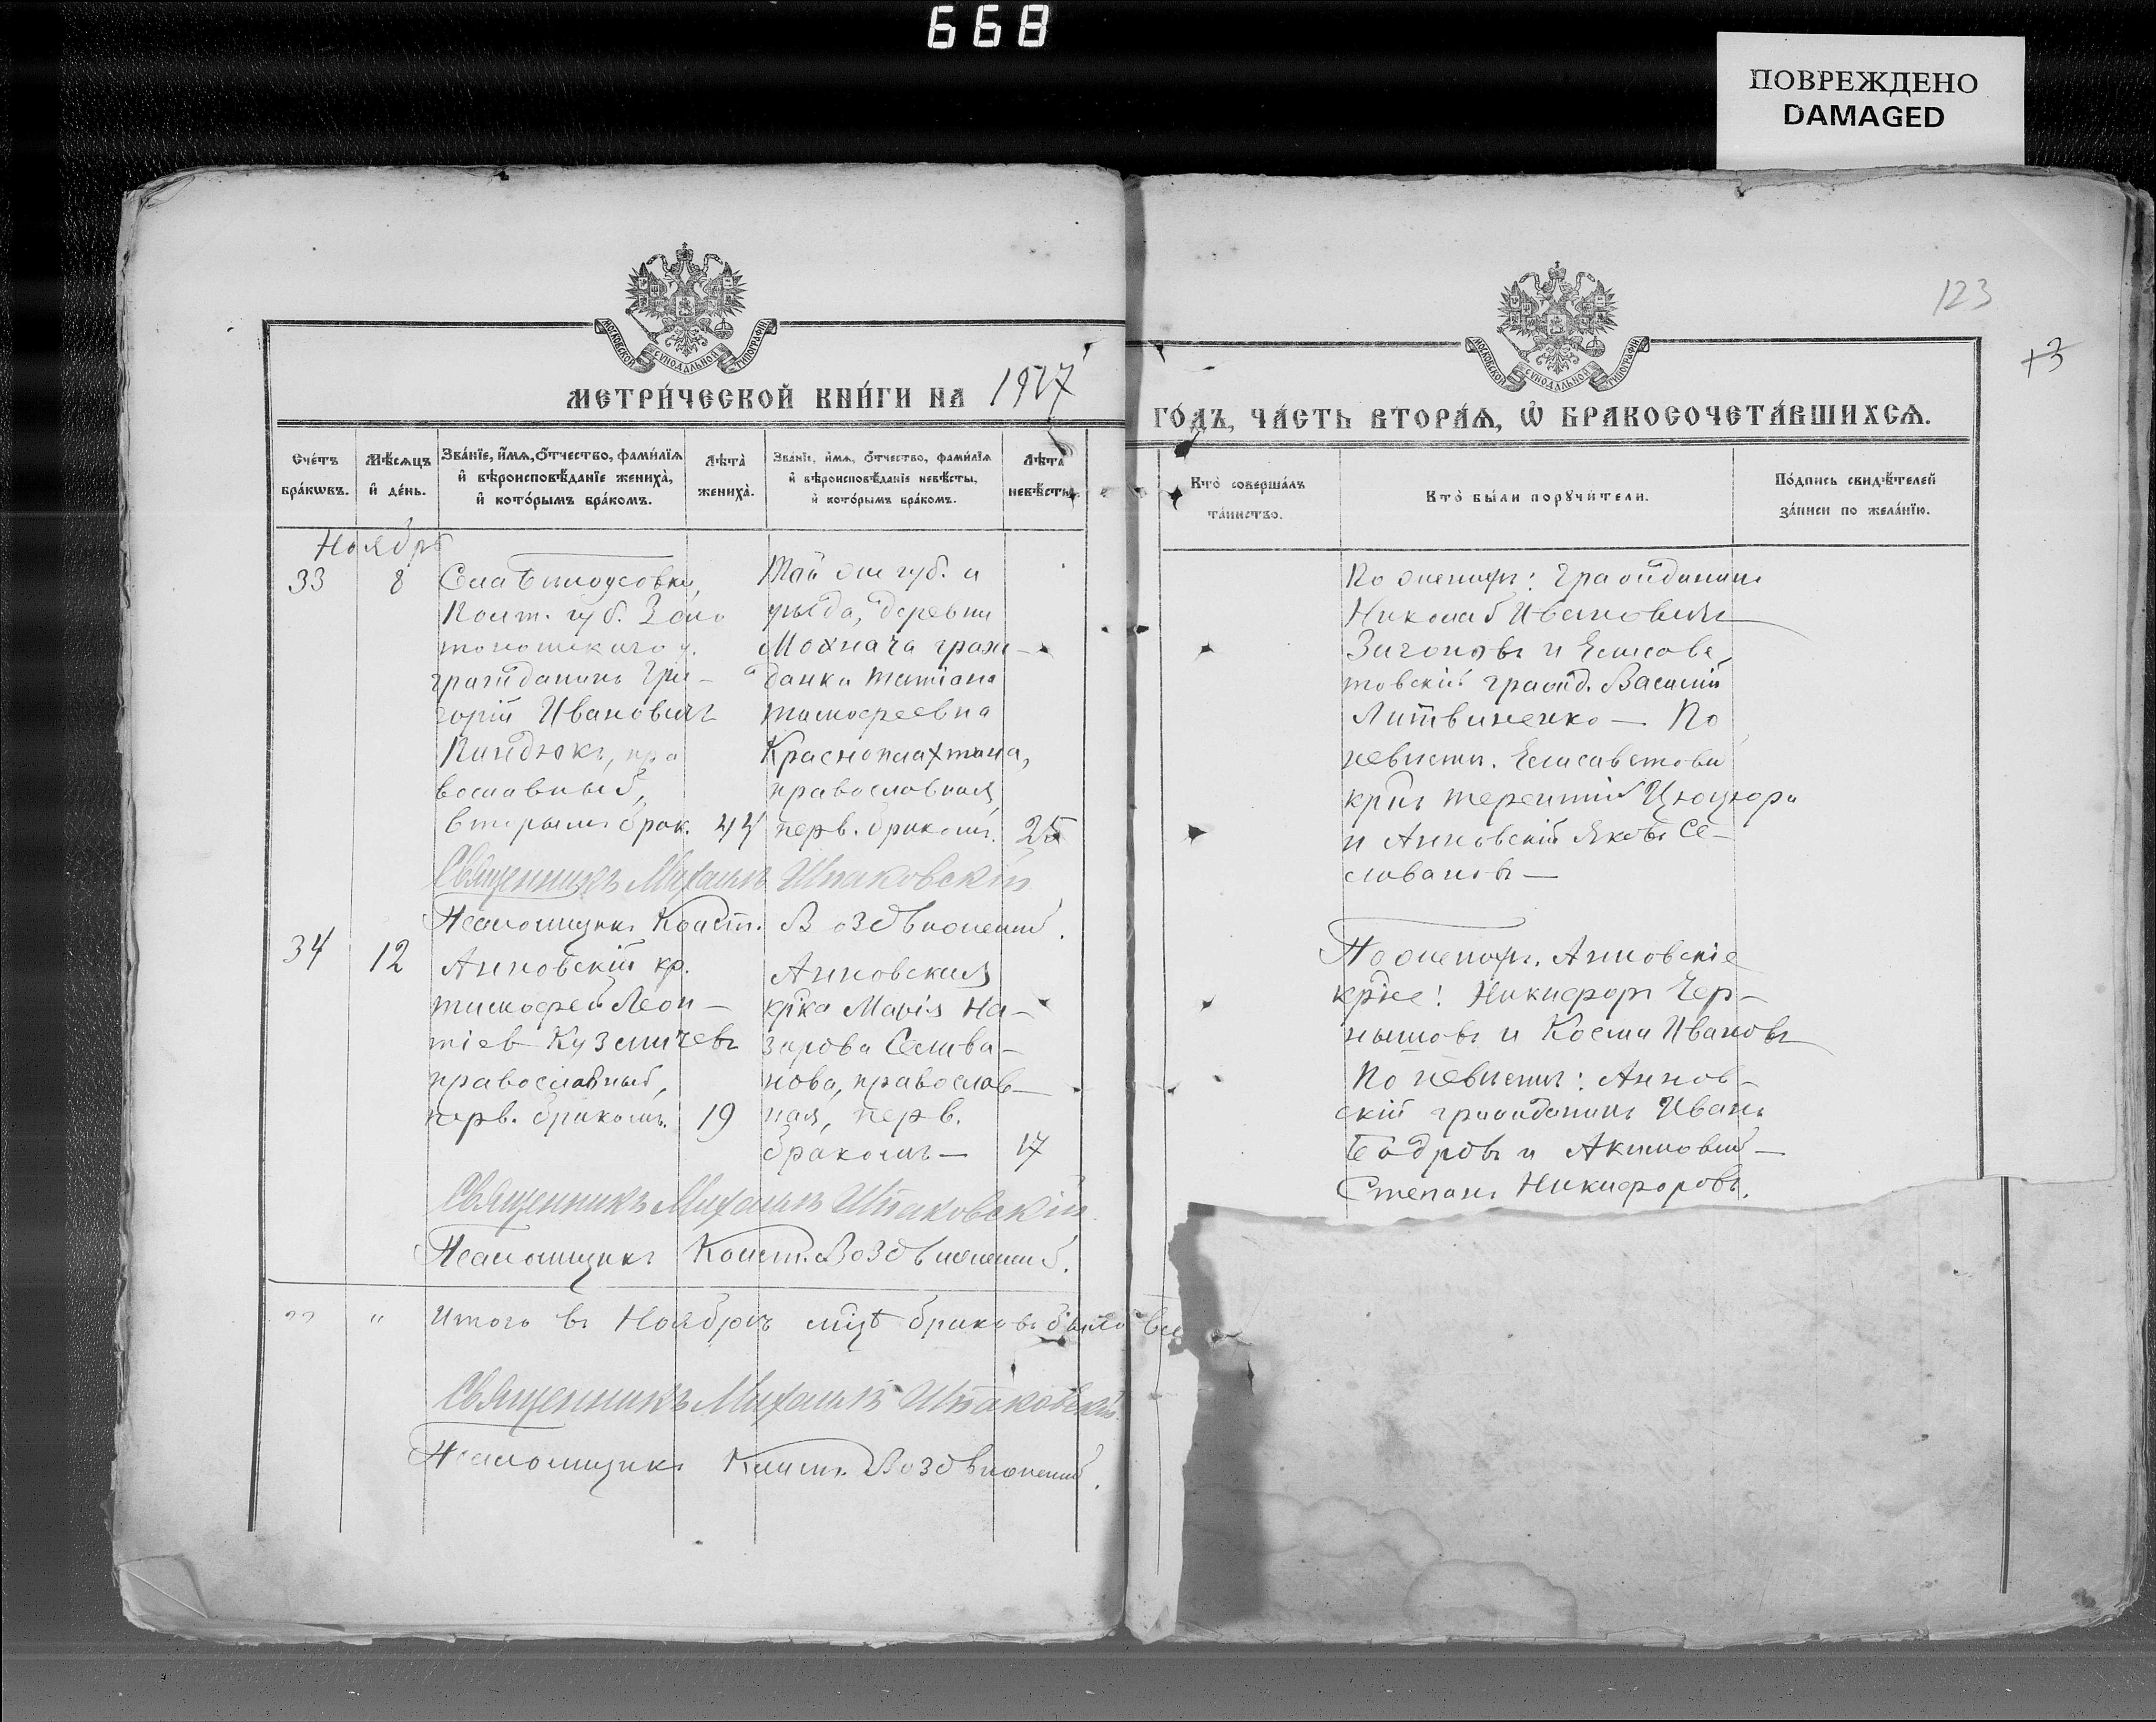 668
ПОВРЕЖДЕНО
DAMAGED
123
+3
МОСКОВСКОЙ СѴНОДАЛЬНОЙ ТИПОГРАФІИ
МОСКОВСКОЙ СѴНОДАЛЬНОЙ ТИПОГРАФІИ
МЕТРИ́ЧЕСКОЙ КНИ́ГИ НА 1917
ГО́ДЪ, ЧА́СТЬ ВТОРА́Ѧ, Ѡ҆ БРАКОСОЧЕТА́ВШИХСѦ.
Сче́тъ бра́кѡвъ.
Мѣ́сѧцъ и҆ де́нь.
Зва́нїе, и҆́мѧ, ѻ҆́тчество, фами́лїѧ и҆ вѣроисповѣ́данїе жениха̀, и҆ кото́рымъ бра́комъ.
Лѣ́та жениха̀.
Зва́нїе, и҆́мѧ, ѻ҆́тчество, фами́лїѧ и҆ вѣроисповѣ́данїе невѣ́сты, и҆ кото́рымъ бра́комъ.
Лѣ́та невѣ́сты.
Кто̀ соверша́лъ та́инство.
Кто̀ бы́ли порꙋчи́тели.
По́дпись свидѣ́телей за́писи по жела́нїю.
Ноябрь
33
8
Села Бѣлоусовки,
Полт. губ. Золо
тоношскаго у.
гражданинъ Гри-
горій Ивановичъ
пра
вославный,
вторымъ брак. 44
Той же губ. и
уѣзда, деревни
Мохнача граж-
данка Татіана
Тимофеевна
Красноплахтина,
православная,
перв. бракомъ. 25
По женихѣ: гражданинъ
Николай Ивановичъ
и Елисаве
товскій гражд. Василій
Литвиненко — По
невѣстѣ. Елисаветовск
крнъ Терентій Цюцюра
и Анновскій Яковъ Се-
ливановъ —
Священникъ Михаилъ Шпаковскій
Псаломщикъ Конст. Воздвиженскій.
34
12
Анновскій кр.
Тимофей Леон-
тіев Кузмичевъ
православный,
перв. бракомъ. 19
Анновская
крка Марія На-
зарова Селива-
нова, православ-
ная, перв.
бракомъ — 17
По женихѣ. Анновскіе
крне: Никифоръ Чер-
нышовъ и Косма Ивановъ
По невѣстѣ: Аннов-
скій гражданинъ Иванъ
Бодровъ и Акимовъ —
Степанъ Никифоровъ.
Священникъ Михаилъ Шпаковскій
Псаломщикъ Конст. Воздвиженскій.
" " Итого въ Ноябрѣ мцѣ браковъ было
Священникъ Михаилъ Шпаковскій.
Псаломщикъ Конст. Воздвиженскій.